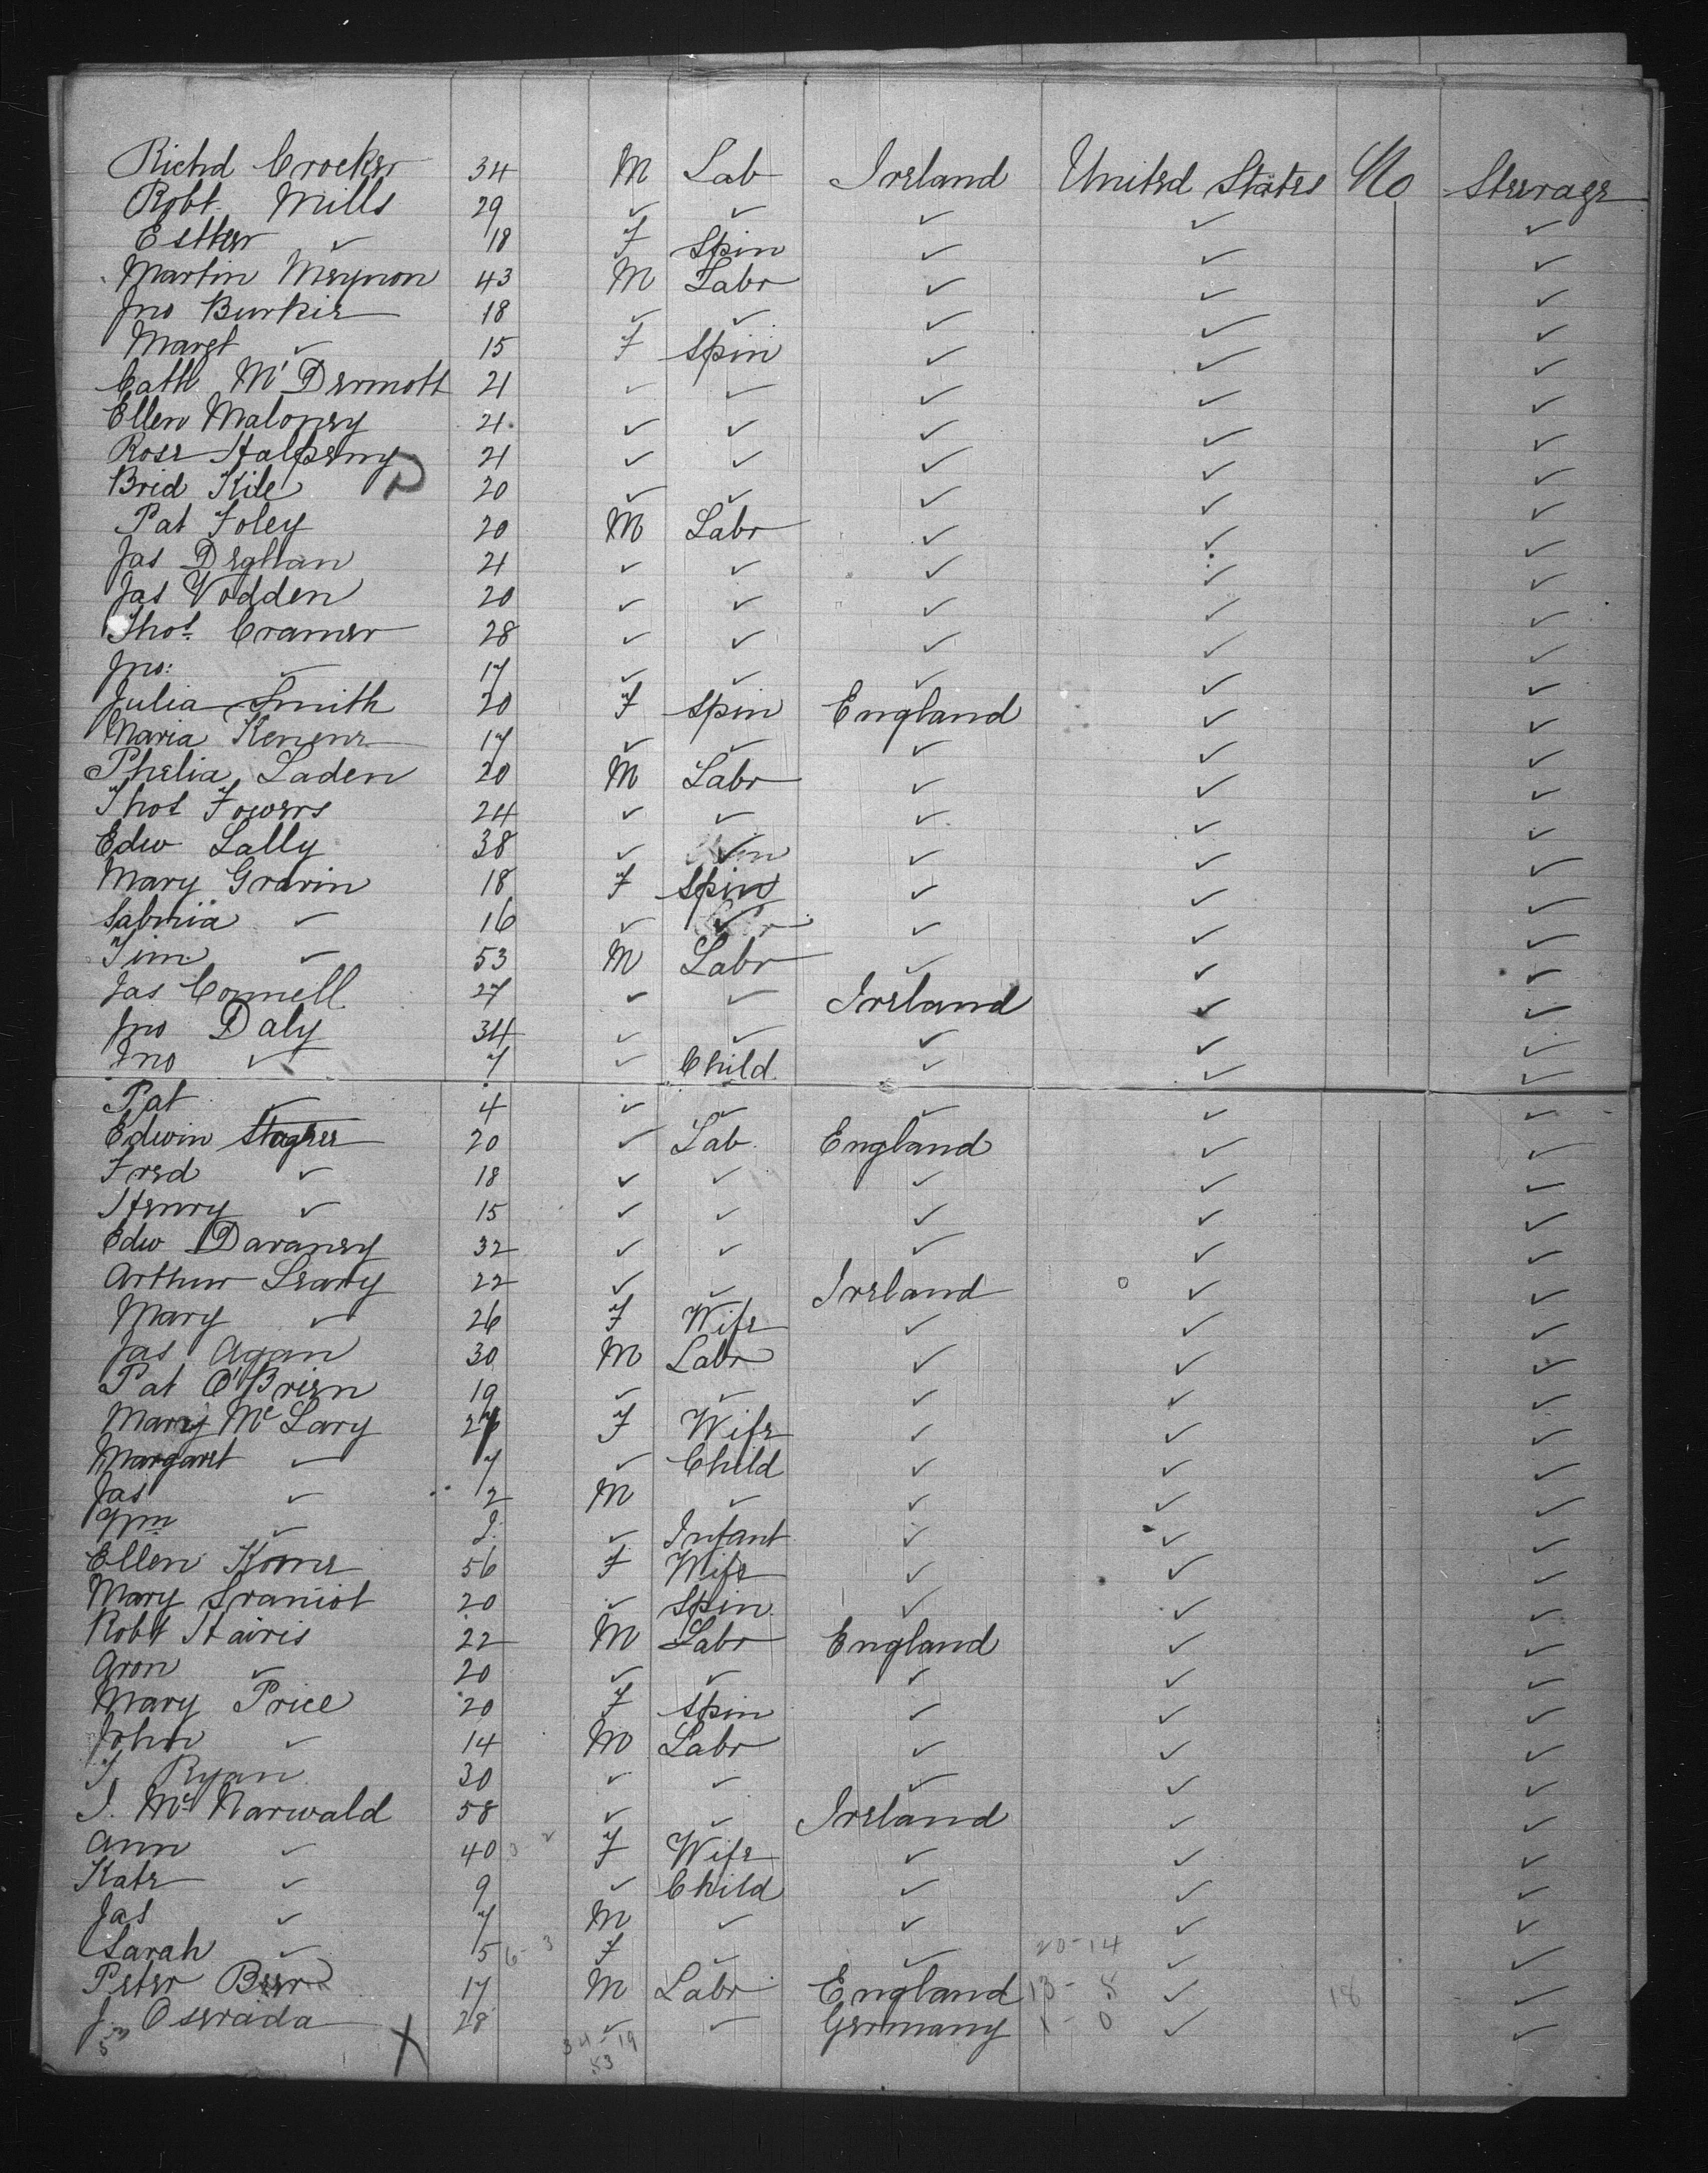 Richd Crocker 34 M Lab Ireland United States No Steerage
Robt. Mills 29 ✓ ✓ ✓ ✓ ✓
Esther ✓ 18 F Spin ✓ ✓ ✓
Martin Meynon 43 M Labr ✓ ✓ ✓
Jno Burkie 18 ✓ ✓ ✓ ✓ ✓
Margt ✓ 15 F Spin ✓ ✓ ✓
Cath McDermott 21 ✓ ✓ ✓ ✓ ✓
Ellen Maloney 21 ✓ ✓ ✓ ✓ ✓
Rose Halpeny 21 ✓ ✓ ✓ ✓ ✓
Brid Kile 20 ✓ ✓ ✓ ✓ ✓
Pat Foley 20 M Labr ✓ ✓ ✓
Jas Deghan 21 ✓ ✓ ✓ ✓ ✓
Jas Vodden 20 ✓ ✓ ✓ ✓ ✓
Thos. Cramer 28 ✓ ✓ ✓ ✓ ✓
Jno: ✓ 17 ✓ ✓ ✓ ✓ ✓
Julia Smith 20 F Spin England ✓ ✓
Maria Kenene 17 ✓ ✓ ✓ ✓ ✓
Phelia Laden 20 M Labr ✓ ✓ ✓
Thos Fowers 24 ✓ ✓ ✓ ✓ ✓
Edw Lally 38 ✓ ✓ ✓ ✓ ✓
Mary Gravin 18 F Spin ✓ ✓ ✓
Sabina ✓ 16 ✓ ✓ ✓ ✓ ✓
Tim ✓ 53 M Labr ✓ ✓ ✓
Jas Connell 27 ✓ ✓ Ireland ✓ ✓
Jno Daly 34 ✓ ✓ ✓ ✓ ✓
Jno ✓ 7 ✓ Child ✓ ✓ ✓
Pat ✓ 4 ✓ ✓ ✓ ✓ ✓
Edwin 20 ✓ Lab England ✓ ✓
Fred ✓ 18 ✓ ✓ ✓ ✓ ✓
Henry ✓ 15 ✓ ✓ ✓ ✓ ✓
Edw Davaney 32 ✓ ✓ ✓ ✓ ✓
Arthur Leary 22 ✓ ✓ Ireland ✓ ✓
Mary ✓ 26 F Wife ✓ ✓ ✓
Jas Agan 30 M Labr ✓ ✓ ✓
Pat O'Brien 19 ✓ ✓ ✓ ✓ ✓
Mary McLary F Wife ✓ ✓ ✓
Margaret ✓ 7 ✓ Child ✓ ✓ ✓
Jas ✓ 2 M ✓ ✓ ✓ ✓
Wm ✓ ✓ Infant ✓ ✓ ✓
Ellen 56 F Wife ✓ ✓ ✓
Mary 20 ✓ Spin ✓ ✓ ✓
Robt Hairis 22 M Labr England ✓ ✓
Aron ✓ 20 ✓ ✓ ✓ ✓ ✓
Mary Price 20 F Spin ✓ ✓ ✓
John ✓ 14 M Labr ✓ ✓ ✓
T. Ryan 30 ✓ ✓ ✓ ✓ ✓
J. McNarwald 58 ✓ ✓ Ireland ✓ ✓
Ann ✓ 40 F Wife ✓ ✓ ✓
Kate ✓ 9 ✓ Child ✓ ✓ ✓
Jas ✓ 7 M ✓ ✓ ✓ ✓
Sarah ✓ 5 6-3 F ✓ ✓ 20-14 ✓ ✓
Peter Beer 17 M Labr England 13-5 ✓ 18 ✓
J. Oserada 28 ✓ ✓ Germany 1-0 ✓ ✓
53 X 34-19
53